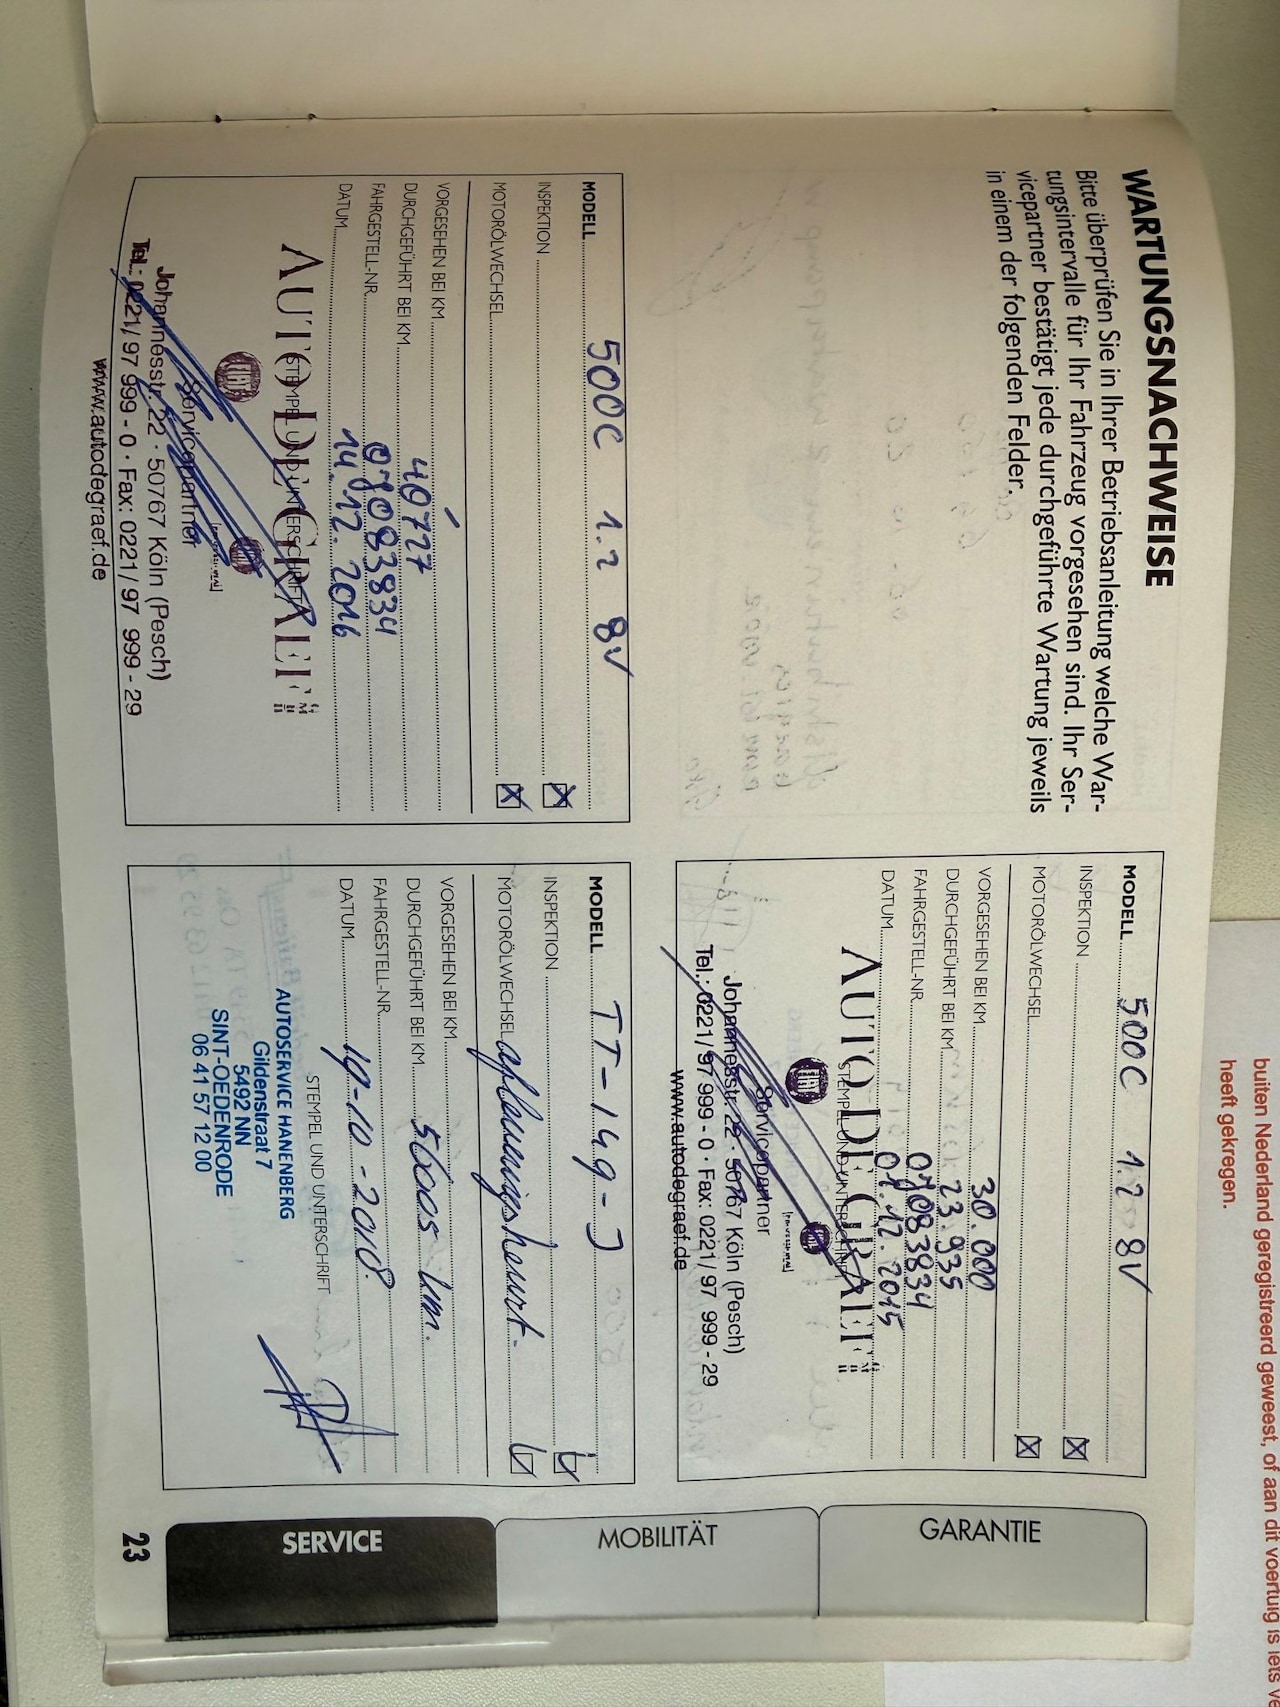 WARTUNGSNACHWEISE
Bitte überprüfen Sie in Ihrer Betriebsanleitung welche War-
tungsintervalle für Ihr Fahrzeug vorgesehen sind. Ihr Ser-
vicepartner bestätigt jede durchgeführte Wartung jeweils
in einem der folgenden Felder.
MODELL 500C 1.2 8V
INSPEKTION
MOTORÖLWECHSEL
VORGESEHEN BEI KM 30.000
DURCHGEFÜHRT BEI KM 23.935
FAHRGESTELL-NR. 07083834
DATUM 07.12.2015
STEMPEL UND UNTERSCHRIFT
AUTO DE GRAEF GMBH
FIAT
Servicepartner
Johannesstr. 22 · 50767 Köln (Pesch)
Tel.: 0221/97 999 - 0 · Fax: 0221/97 999 - 29
www.autodegraef.de
MODELL 500C 1.2 8V
INSPEKTION
MOTORÖLWECHSEL
VORGESEHEN BEI KM
DURCHGEFÜHRT BEI KM 40727
FAHRGESTELL-NR. 07083834
DATUM 14.12.2016
STEMPEL UND UNTERSCHRIFT
AUTO DE GRAEF GMBH
FIAT
Servicepartner
Johannesstr. 22 · 50767 Köln (Pesch)
Tel.: 0221/97 999 - 0 · Fax: 0221/97 999 - 29
www.autodegraef.de
MODELL TT-149-J
INSPEKTION
MOTORÖLWECHSEL afleveringsbeurt.
VORGESEHEN BEI KM
DURCHGEFÜHRT BEI KM 56005 km.
FAHRGESTELL-NR.
DATUM 19-10-2018.
STEMPEL UND UNTERSCHRIFT
AUTOSERVICE HANENBERG
Gildenstraat 7
5492 NN
SINT-OEDENRODE
06 41 57 12 00
GARANTIE
MOBILITÄT
SERVICE
23
buiten Nederland geregistreerd geweest, of aan dit voertuig is iets
heeft gekregen.